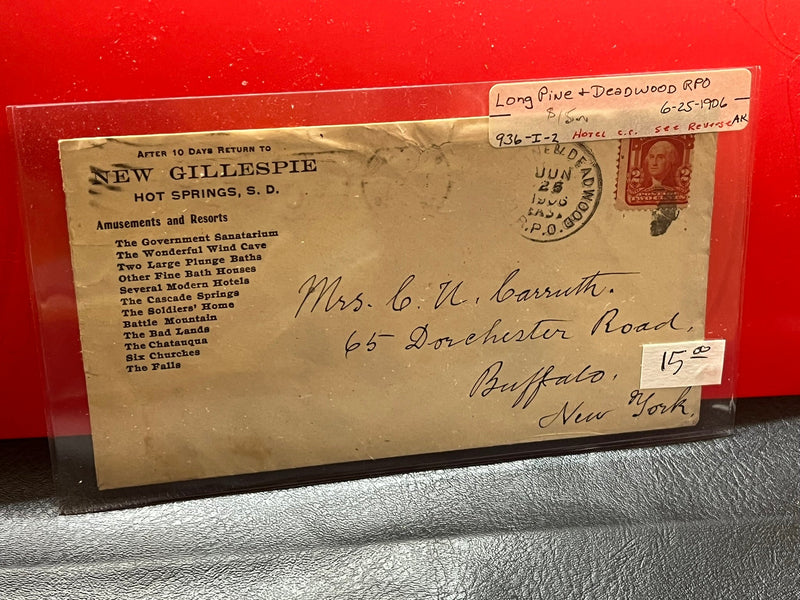 Long Pine + Deadwood RPO
$15
6-25-1906
936-I-2 Hotel c.c. See Reverse AK
AFTER 10 DAYS RETURN TO
NEW GILLESPIE
HOT SPRINGS, S. D.
Amusements and Resorts
The Government Sanatarium
The Wonderful Wind Cave
Two Large Plunge Baths
Other Fine Bath Houses
Several Modern Hotels
The Cascade Springs
The Soldiers' Home
Battle Mountain
The Bad Lands
The Chatauqua
Six Churches
The Falls
NE & DEADWOOD
JUN
25
1906
EAST
R.P.O.
2 2
TWO CENTS
Mrs. C. N. Carruth.
65 Dorchester Road,
Buffalo,
New York.
15.00